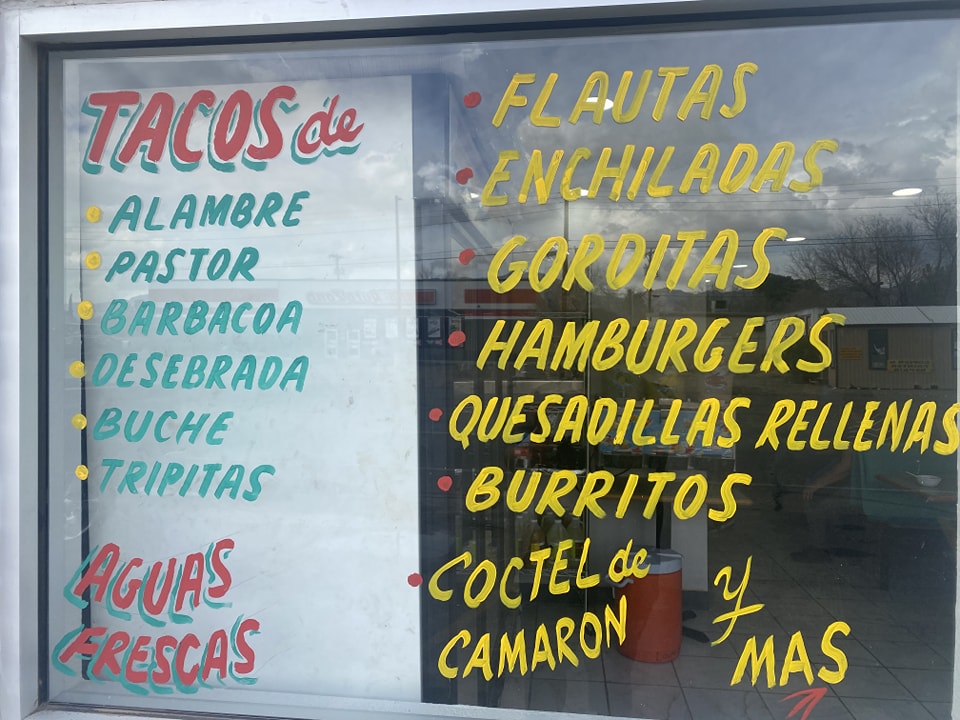 TACOS de
ALAMBRE
PASTOR
BARBACOA
DESEBRADA
BUCHE
TRIPITAS
AGUAS
FRESCAS
FLAUTAS
ENCHILADAS
GORDITAS
HAMBURGERS
QUESADILLAS RELLENAS
BURRITOS
COCTEL de
CAMARON
Y
MAS